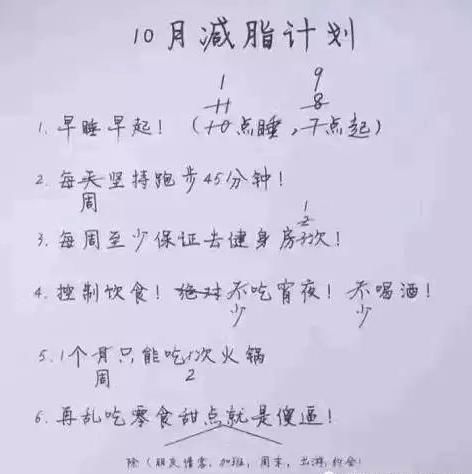 10月减脂计划
1 9
11 8
1. 早睡早起！（10点睡，7点起）
2. 每天坚持跑步45分钟！
周
1
2
3. 每周至少保证去健身房3次！
4. 控制饮食！绝对不吃宵夜！不喝酒！
少 少
5. 1个月只能吃1次火锅
周 2
6. 再乱吃零食甜点就是傻逼！
除（朋友请客，加班，周末，出游，约会）